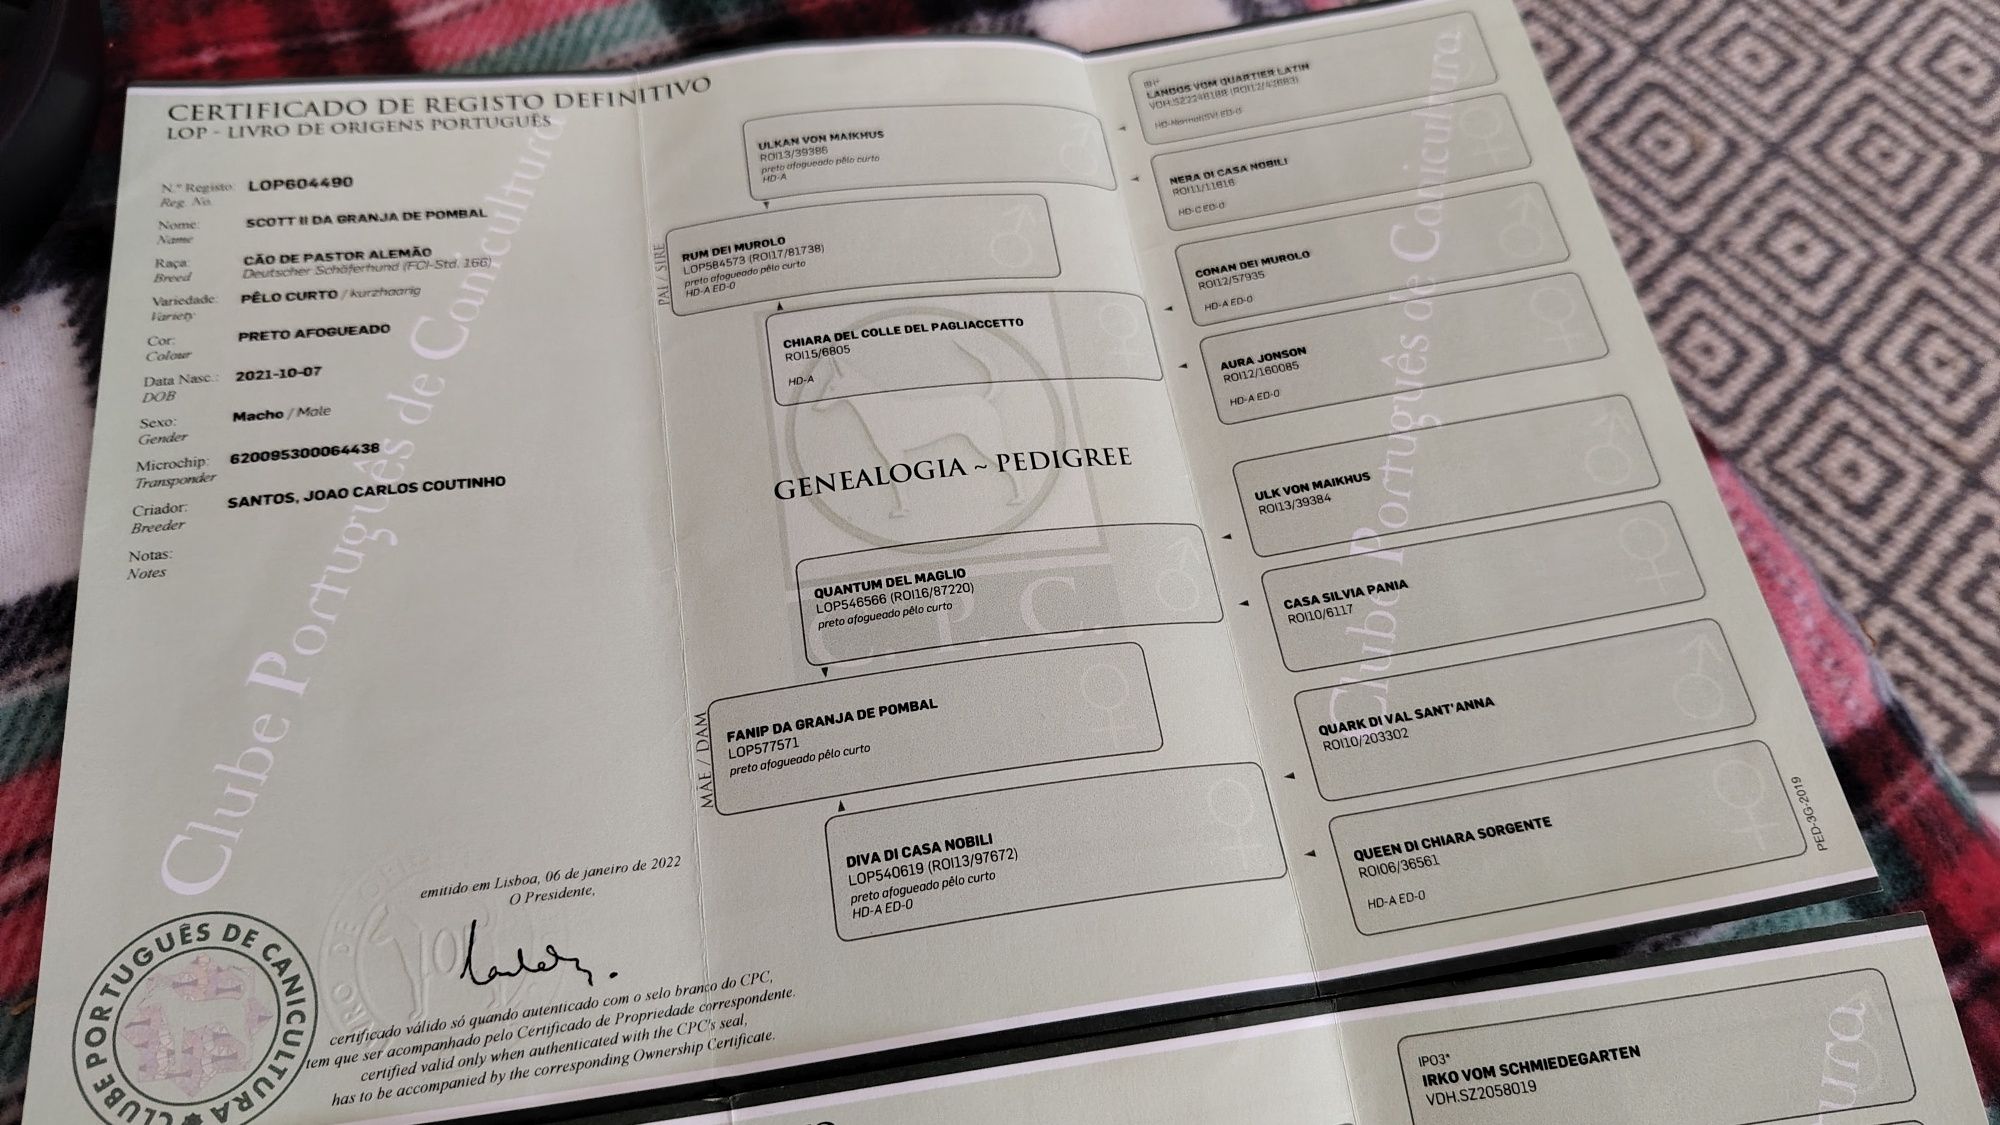 CERTIFICADO DE REGISTO DEFINITIVO
LOP - LIVRO DE ORIGENS PORTUGUÊS
N.º Registo: LOP604490
Reg. No.
Nome: SCOTT II DA GRANJA DE POMBAL
Name
Raça: CÃO DE PASTOR ALEMÃO
Breed Deutscher Schäferhund (FCI-Std. 166)
Variedade: PÊLO CURTO / kurzhaarig
Variety
Cor: PRETO AFOGUEADO
Colour
Data Nasc.: 2021-10-07
DOB
Sexo: Macho / Male
Gender
Microchip: 620095300064438
Transponder
Criador: SANTOS, JOAO CARLOS COUTINHO
Breeder
Notas:
Notes
Clube Português de Canicultura
emitido em Lisboa, 06 de janeiro de 2022
O Presidente,
certificado válido só quando autenticado com o selo branco do CPC,
tem que ser acompanhado pelo Certificado de Propriedade correspondente.
certified valid only when authenticated with the CPC's seal,
has to be accompanied by the corresponding Ownership Certificate.
CLUBE PORTUGUÊS DE CANICULTURA
ULKAN VON MAIKHUS
ROI13/39386
preto afogueado pêlo curto
HD-A
PAI / SIRE
RUM DEI MUROLO
LOP584573 (ROI17/81738)
preto afogueado pêlo curto
HD-A ED-0
CHIARA DEL COLLE DEL PAGLIACCETTO
ROI15/6805
HD-A
GENEALOGIA ~ PEDIGREE
C.P.C.
QUANTUM DEL MAGLIO
LOP546566 (ROI16/87220)
preto afogueado pêlo curto
MÃE / DAM
FANIP DA GRANJA DE POMBAL
LOP577571
preto afogueado pêlo curto
DIVA DI CASA NOBILI
LOP540619 (ROI13/97672)
preto afogueado pêlo curto
HD-A ED-0
LANDOS VOM QUARTIER LATIN
HD-Normal(SV) ED-0
NERA DI CASA NOBILI
ROI11/11616
HD-C ED-0
CONAN DEI MUROLO
ROI12/57935
HD-A ED-0
AURA JONSON
ROI12/160085
HD-A ED-0
ULK VON MAIKHUS
ROI13/39384
CASA SILVIA PANIA
ROI10/6117
QUARK DI VAL SANT'ANNA
ROI10/203302
QUEEN DI CHIARA SORGENTE
ROI06/36561
HD-A ED-0
Clube Português de Canicultura
PED-3G-2019
IPO3*
IRKO VOM SCHMIEDEGARTEN
VDH.SZ2058019